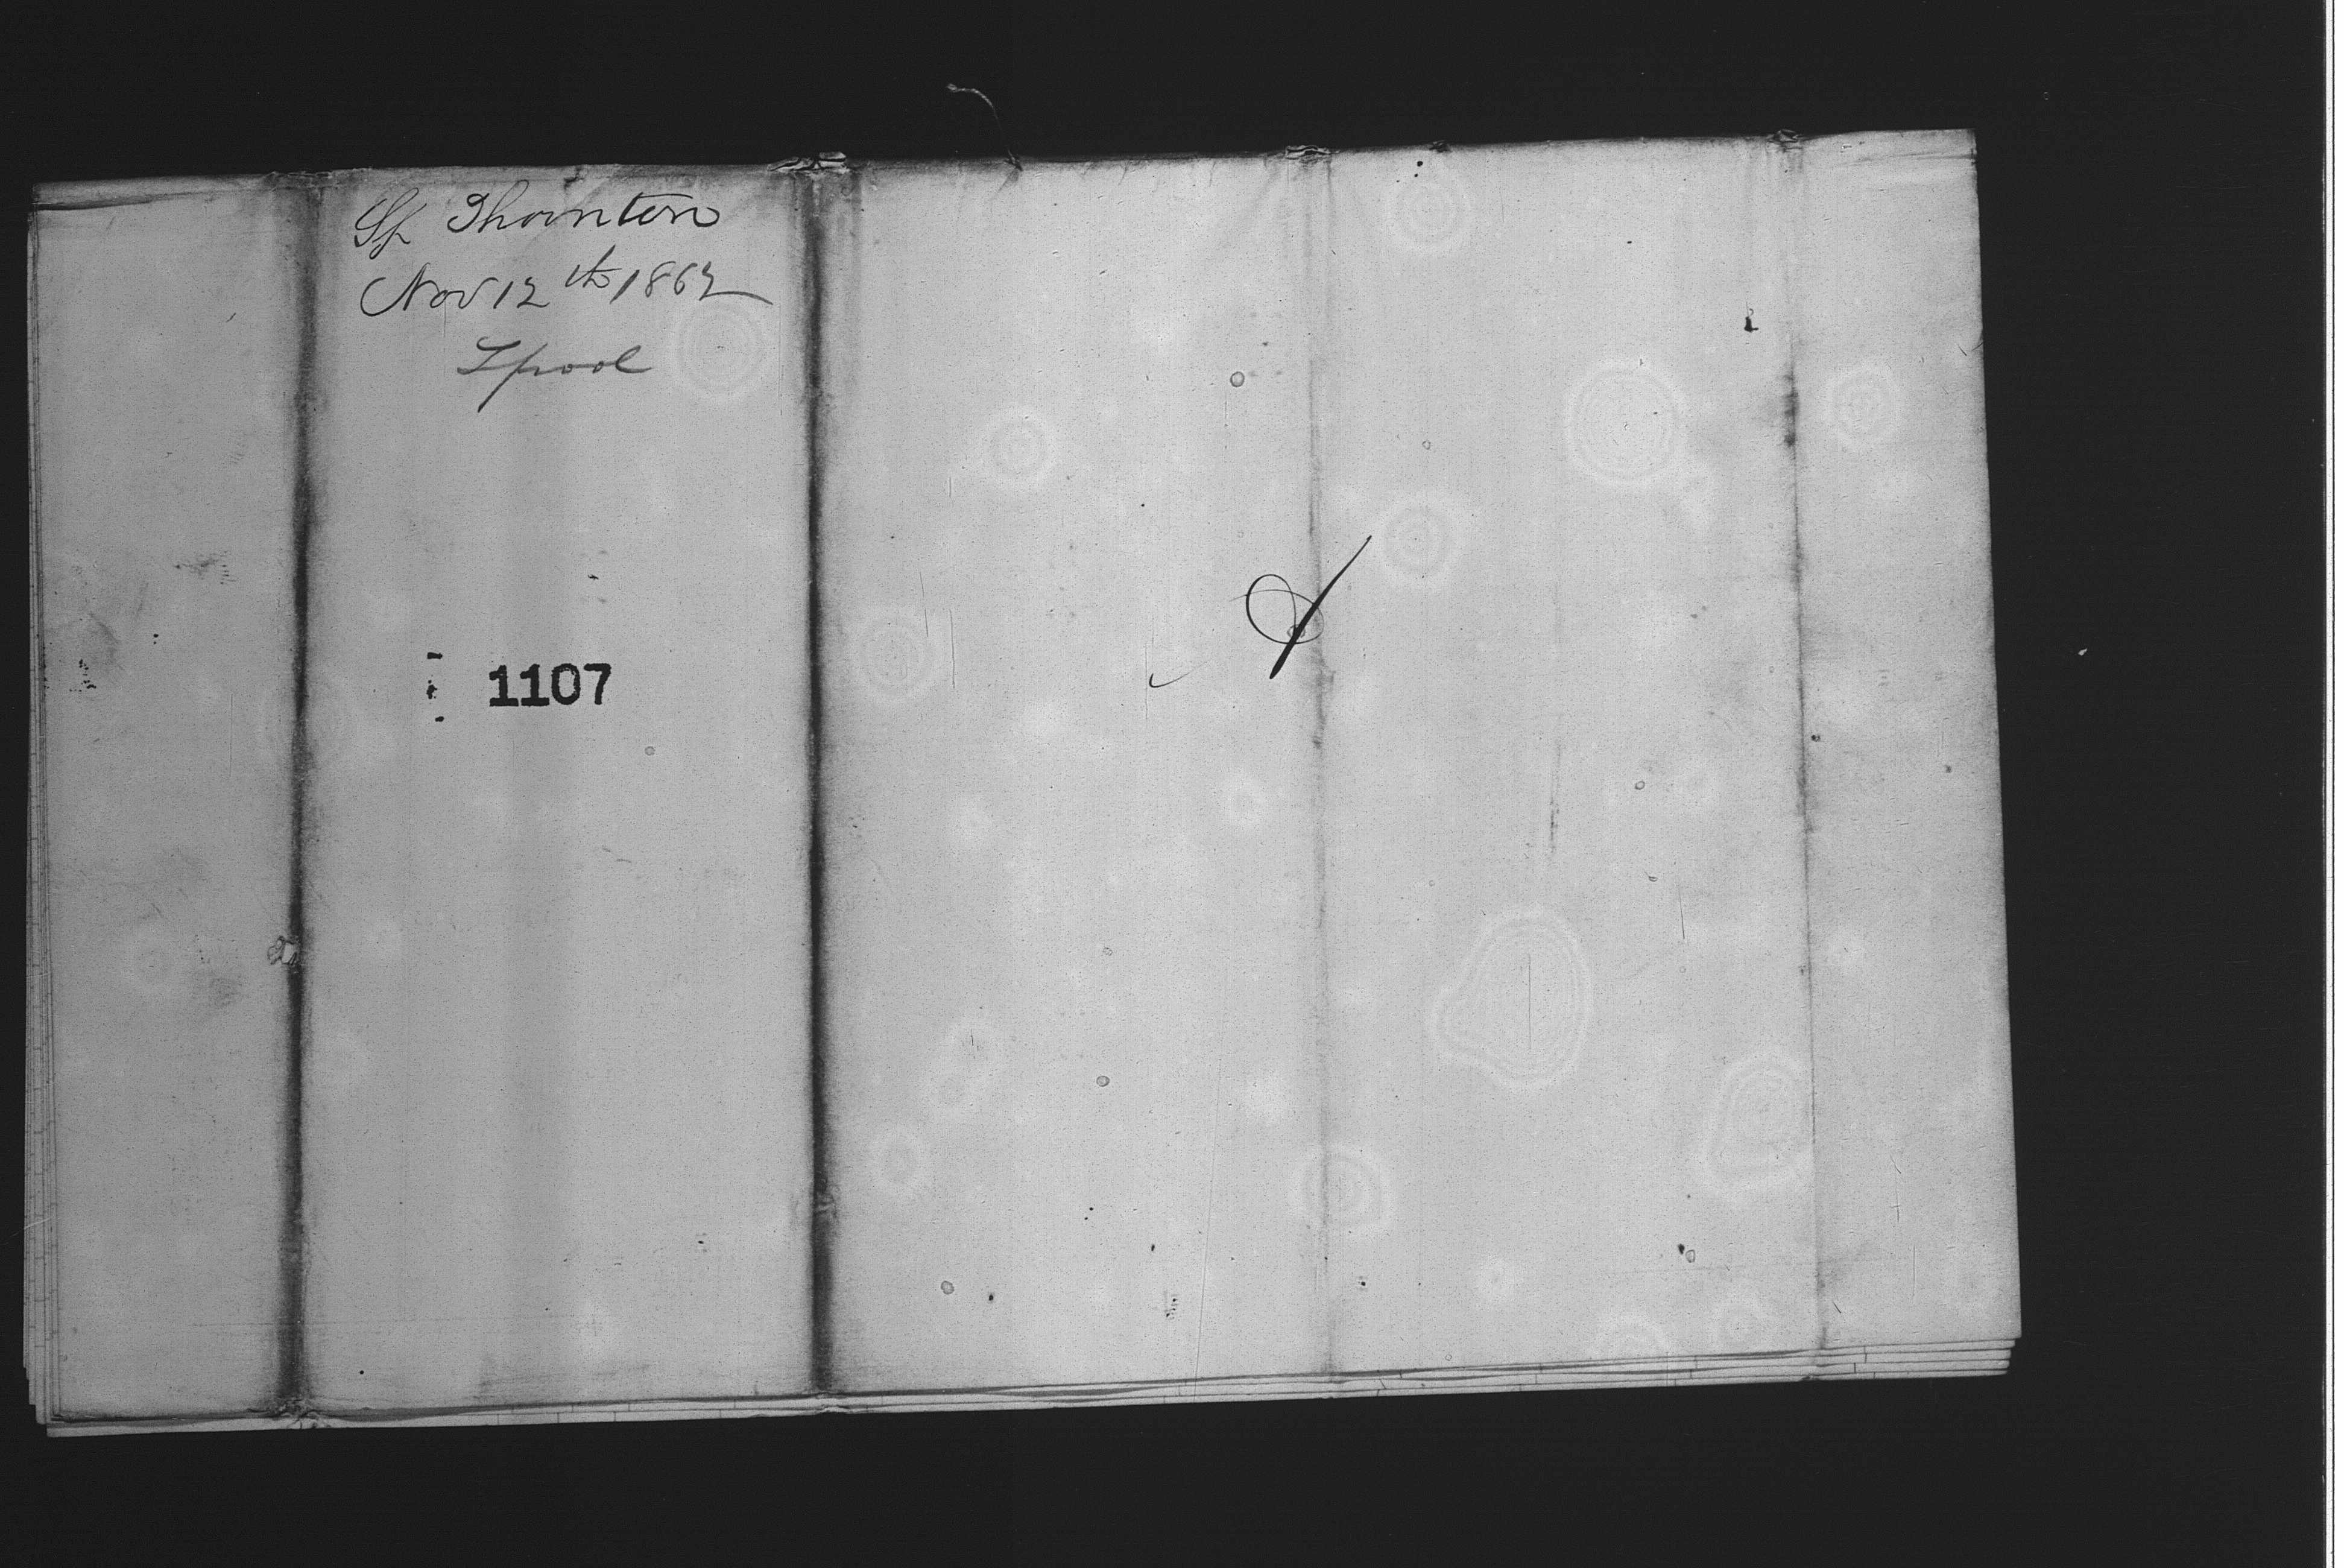 SS Thornton
Nov 12th 1862
Lpool
1107